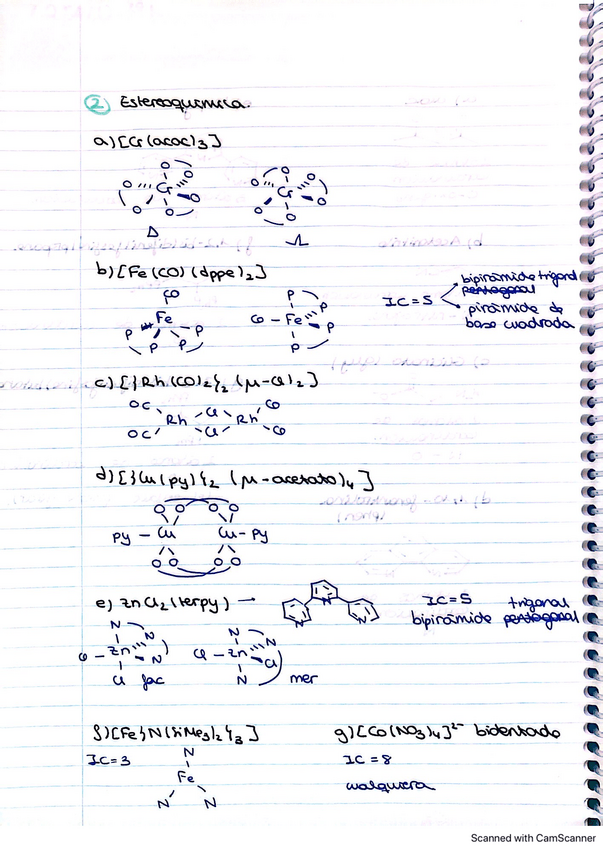 2 Estereoquímica.
a) [Cr(acac)3]
O O O Cr O O O
O O O Cr O O O
Δ Λ
b) [Fe(CO)(dppe)2]
CO Fe P P P P
CO - Fe P P P P
IC = 5
bipirámide trigonal
pentagonal
pirámide de
base cuadrada
c) [{Rh(CO)2}2(μ-Cl)2]
OC Cl CO
Rh Rh
OC Cl CO
d) [{Cu(py)}2 (μ-acetato)4]
O O O O
py - Cu Cu - py
O O O O
e) ZnCl2(terpy) → N N N
IC = 5 trigonal
bipirámide pentagonal
N N Zn N Cl Cl fac
N N Cl - Zn Cl N mer
f) [Fe{N(SiMe3)2}3]
IC = 3
N
Fe
N N
g) [Co(NO3)4]2- bidentado
IC = 8
cualquiera
Scanned with CamScanner